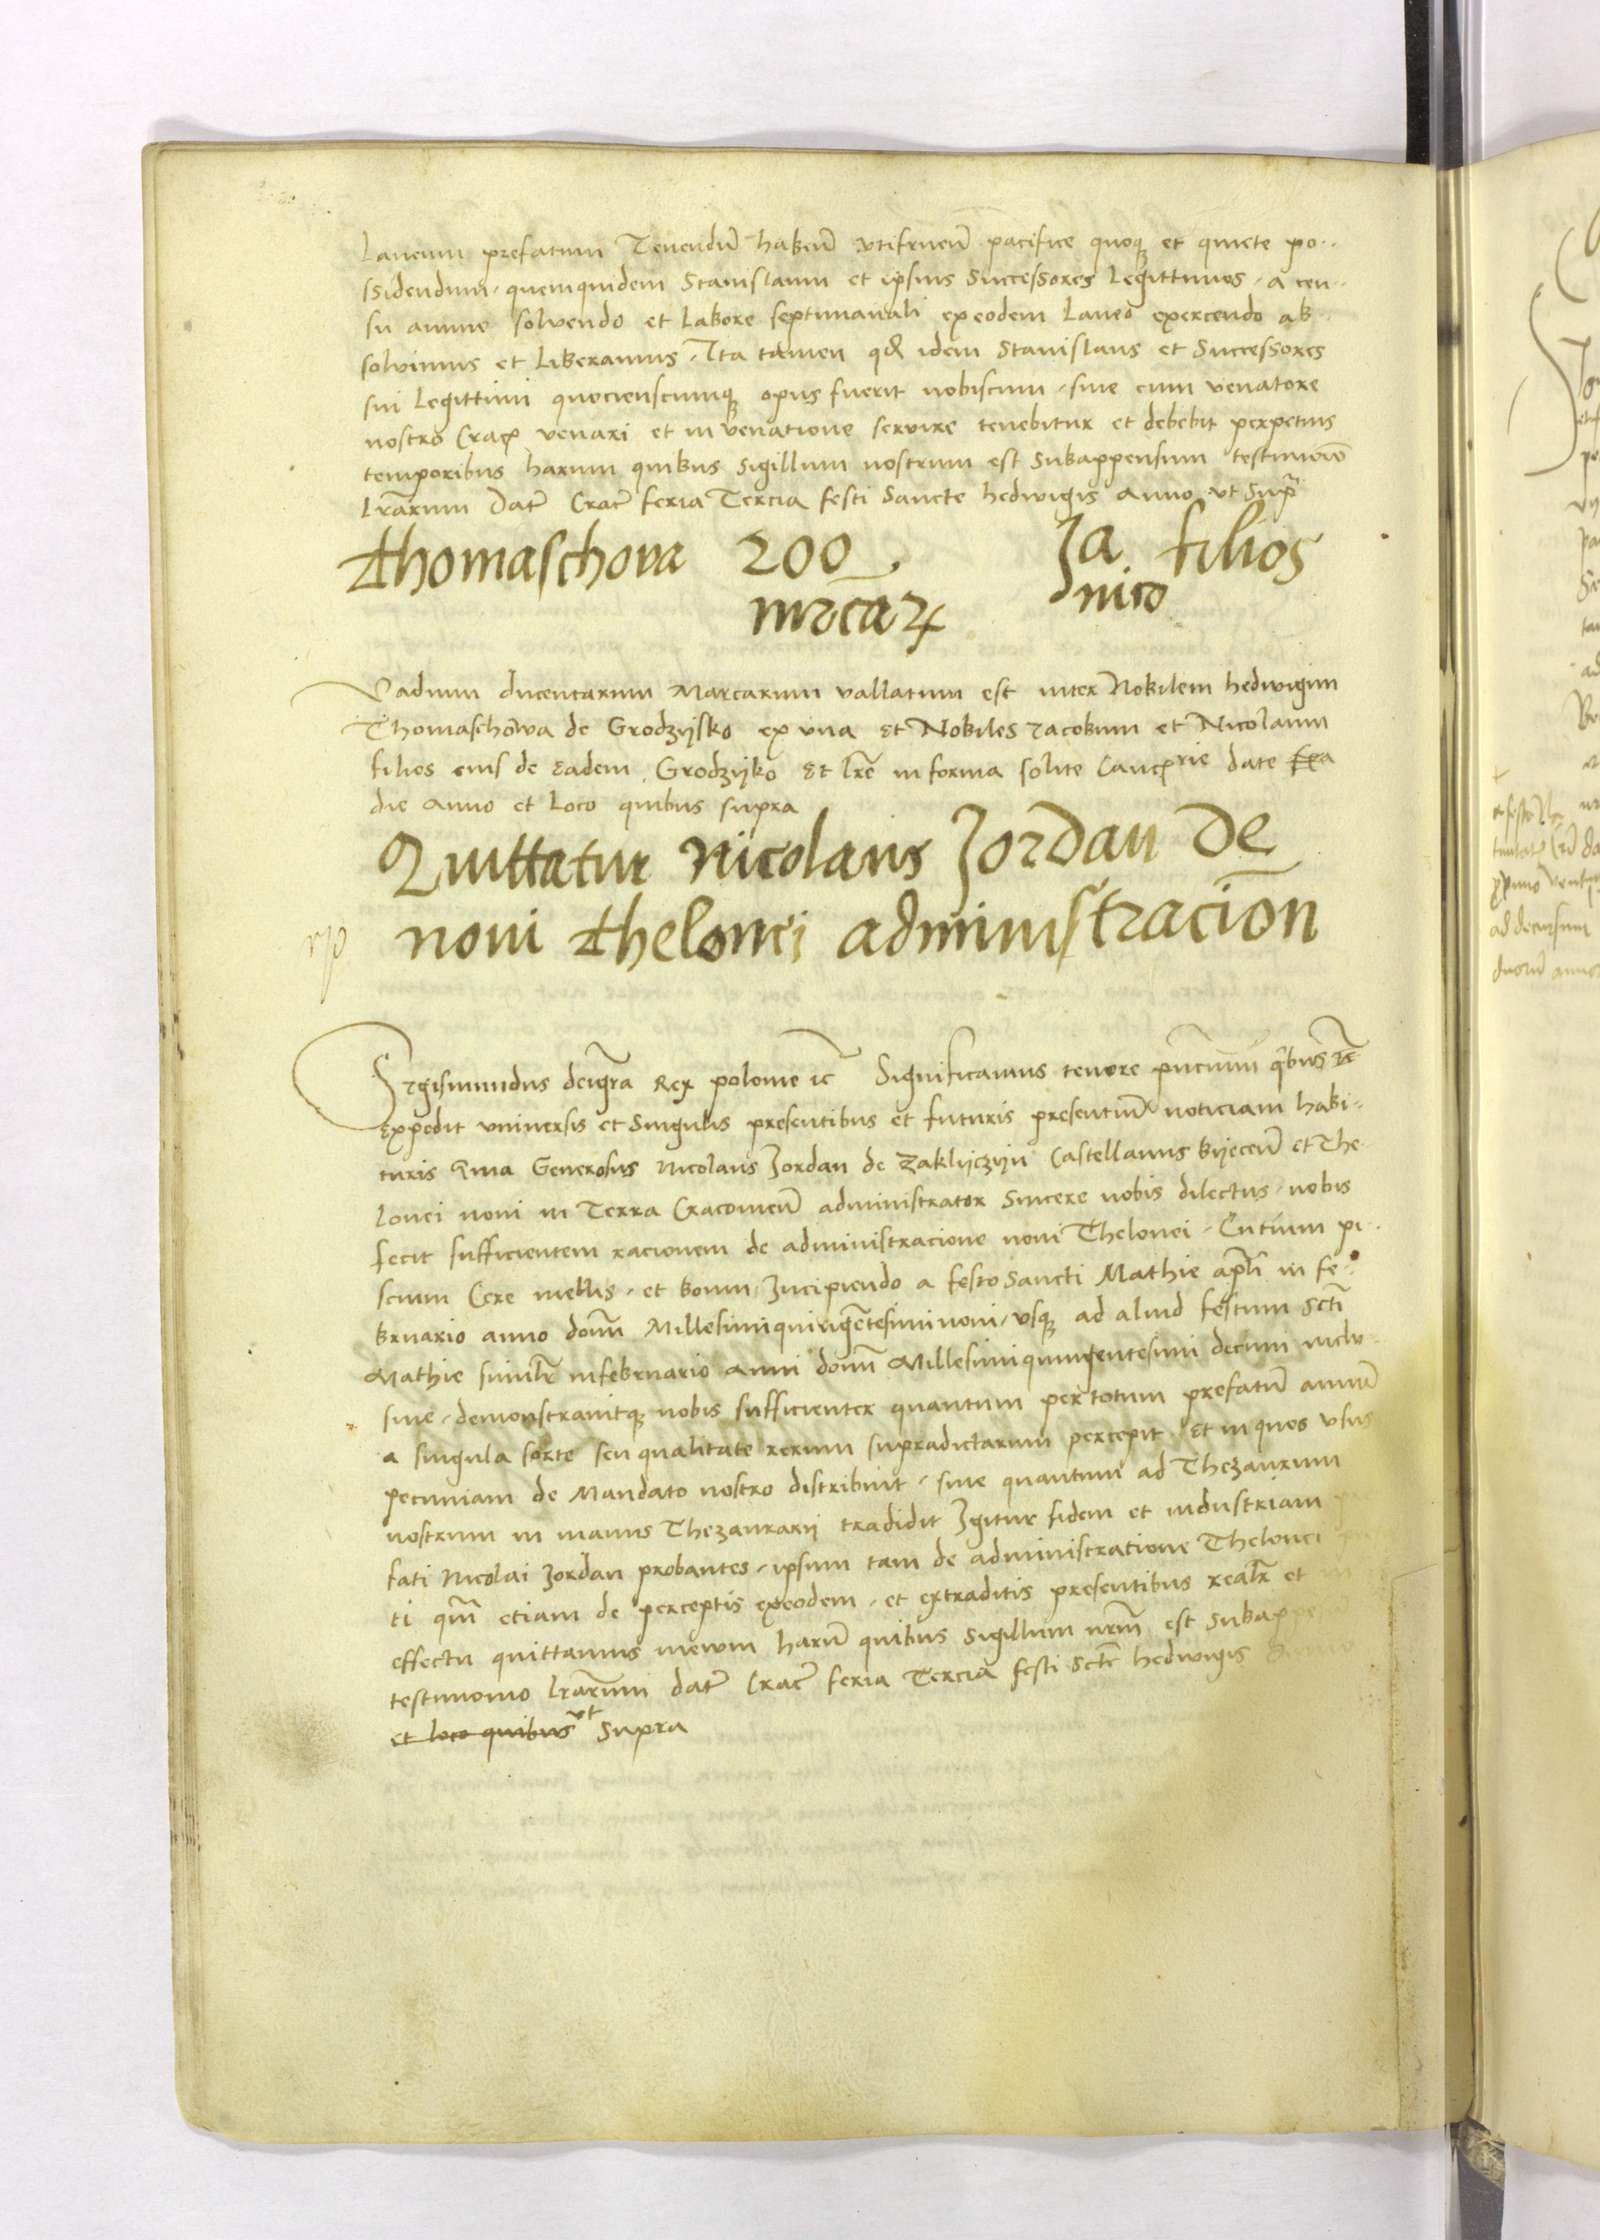 Laneum prefatum Tenendū habeñ vtifrueñ pacifice quoqꝫ et quiete po-
ssidendum. quemquidem Stanislaum et ipsius Successores Legittimos. a cen-
su annuo solvendo et Labore septimanali ex eodem Laneo exercendo ab-
solvimus et Liberamus. Ita tamen qd idem Stanislaus et Successores
sui Legittimi quocienscumqꝫ opus fuerit nobiscum. siue cum venatore
nostro Crac̄ venari et in venatione servire tenebitur et debebit perpetuis
temporibus harum quibus sigillum nostrum est Subappensum testimoniō
Lrārum Dat̄ Crac̄ feria Tercia festi Sancte hedwigis Anno vt Supr̄
Thomaschova 200 Ja filios
mrcaꝝ nico
Vadium ducentarum Marcarum vallatum est inter Nobilem hedwigim
Thomaschowa de Grodzijsko ex vna Et Nobiles Jacobum et Nicolaum
filios eius de Eadem Grodzijko Et Lrē in forma solite Cancꝛie date
die Anno et Loco quibus supra
Quittatur Nicolaus Jordan De
novi Thelonei administracion̄
Sigismundus deigrā Rex polonie ꝛc̄ Significamus tenore pn̄cium qb̄us
Expedit vniversis et Singulis presentibus et futuris presentiū noticiam habi-
turis Qmā Generosus Nicolaus Jordan de Zaklijczijn Castellanus bijeceñ et The-
lonei novi in Terra Cracovieñ administrator Sincere nobis dilectus. nobis
fecit sufficientem racionem de administracione novi Thelonei. Cutium pi-
scium Cere mellis. et boum. Incipiendo a festo Sancti Mathie apłi in fe-
bruario anno domī Millesimiquingētesimi noni. vsqꝫ ad aliud festum Sctī
Mathie similr̄ in februario anni domī Millesimiquingentesimi decimi inclu-
siue. demonstravitqꝫ nobis sufficienter quantum per totum prefatū annū
a singula sorte seu qualitate rerum supradictarum percepit. Et in quos vsus
pecuniam de Mandato nostro distribuit. siue quantum ad Thezaurum
nostrum in manus Thezaurarij tradidit Igitur fidem et industriam
fati Nicolai Jordan probantes. ipsum tam de administratione Thelonei
ti qm̄ etiam de perceptis exeodem. et extraditis presentibus realr̄ et in
effectu quittamus inevum harū quibus Sigillum nr̄m est Subappe
testimonio Lrārum dat̄ Crac̄ feria Tercia festi Sctē hedwigis Anno
et loco quibus vt supra